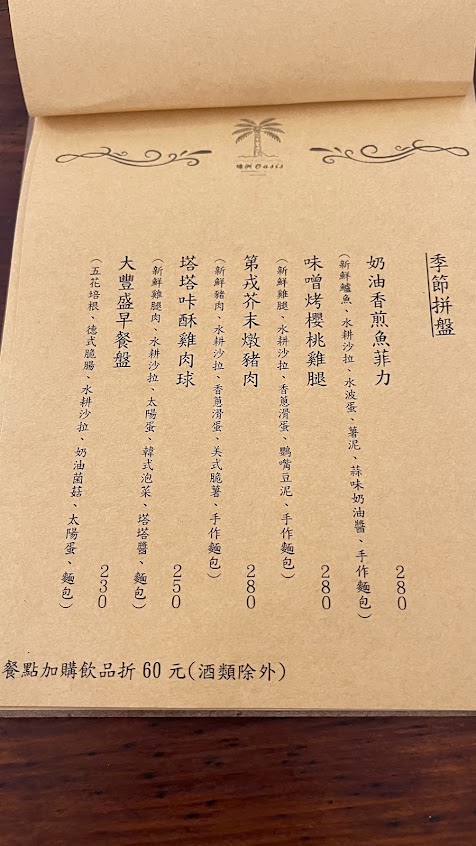 綠洲 Oasis
季節拼盤
奶油香煎魚菲力 280
(新鮮鱸魚、水耕沙拉、水波蛋、薯泥、蒜味奶油醬、手作麵包)
味噌烤櫻桃雞腿 280
(新鮮雞腿、水耕沙拉、香蔥滑蛋、鸚嘴豆泥、手作麵包)
第戎芥末燉豬肉 280
(新鮮豬肉、水耕沙拉、香蔥滑蛋、美式脆薯、手作麵包)
塔塔咔酥雞肉球 250
(新鮮雞腿肉、水耕沙拉、太陽蛋、韓式泡菜、塔塔醬、麵包)
大豐盛早餐盤 230
(五花培根、德式脆腸、水耕沙拉、奶油菌菇、太陽蛋、麵包)
餐點加購飲品折 60 元(酒類除外)